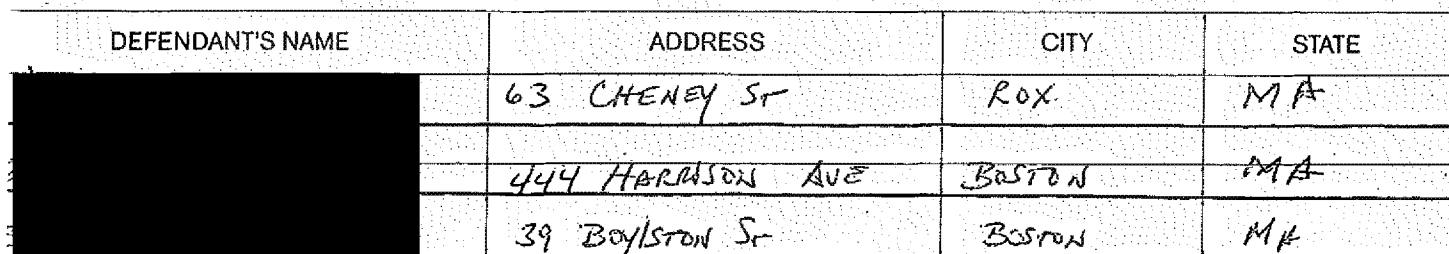 DEFENDANT'S NAME ADDRESS CITY STATE
63 CHENEY ST ROX MA
444 HARRISON AVE BOSTON MA
39 BOYLSTON ST BOSTON MA